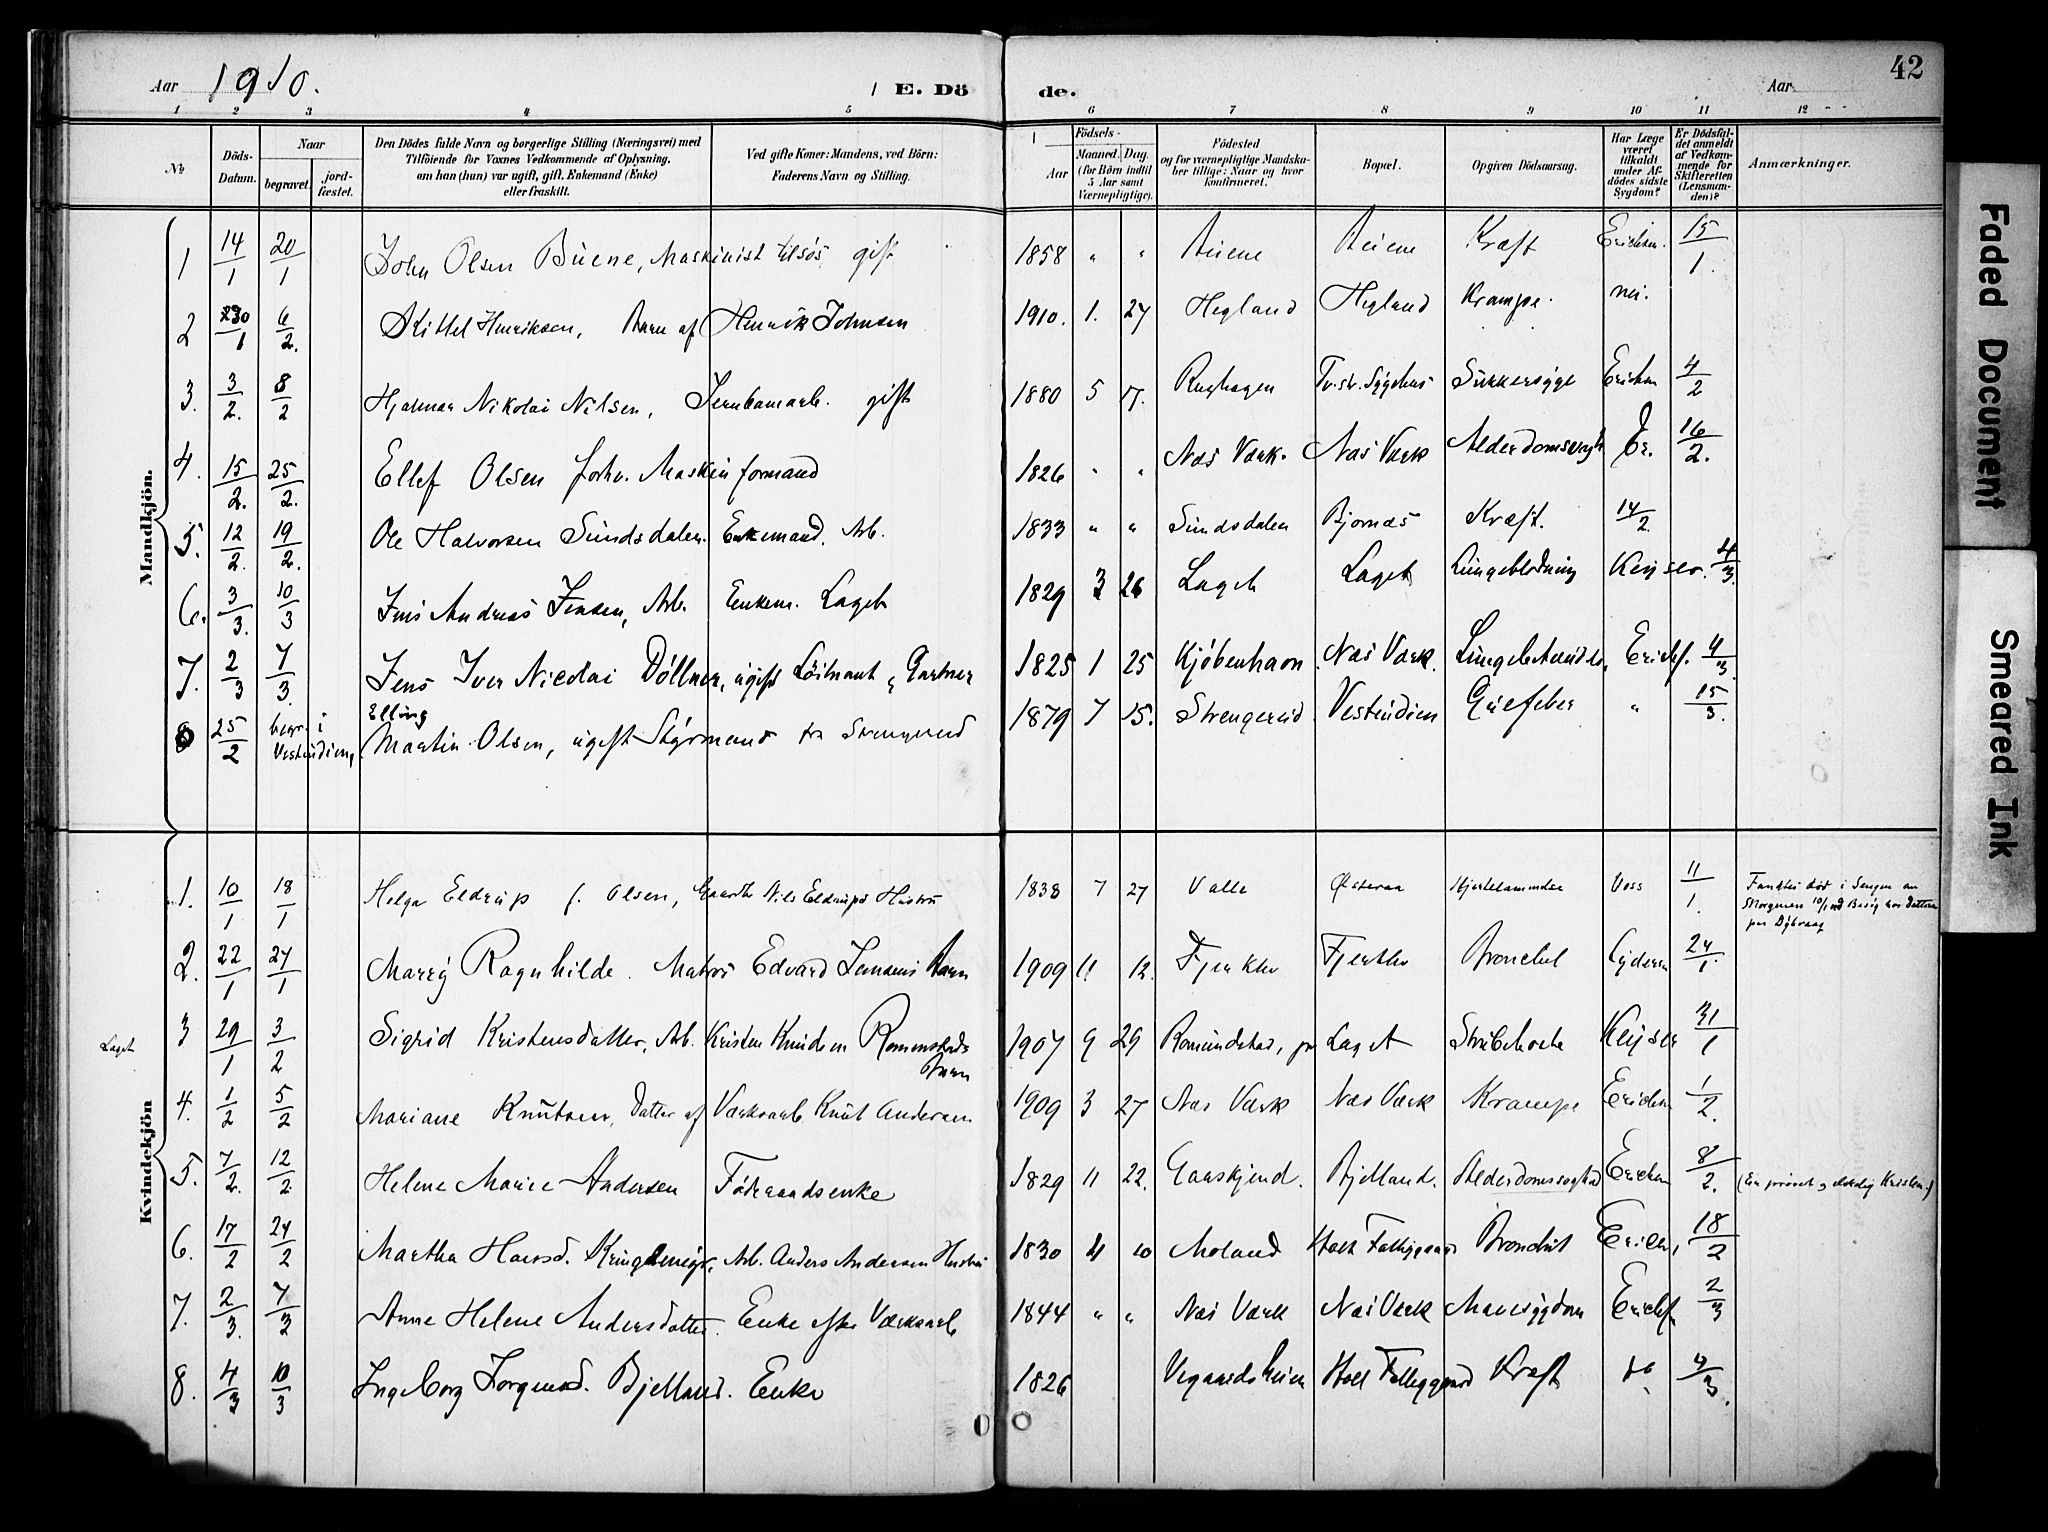 Aar 1910. E. Dö de. Aar 42
1 2 3 4 5 6 7 8 9 10 11 12
No
Döds-Datum.
Naar
begravet.
jord-fæstet.
Den Dödes fulde Navn og borgerlige Stilling (Næringsvei) med
Tilföiende for Voxnes Vedkommende af Oplysning,
om han (hun) var ugift, gift, Enkemand (Enke)
eller fraskilt.
Ved gifte Koner: Mandens, ved Börn:
Faderens Navn og Stilling.
Födsels-
Aar
Maaned. Dag.
(for Börn indtil
5 Aar samt
Værnepligtige).
Födested
og for værnepligtige Mandska-
ber tillige: Naar og hvor
konfirmeret.
Bopæl.
Opgiven Dödsaarsag.
Har Læge
været
tilkaldt
under Af-
dödes sidste
Sygdom?
Er Dödsfal-
det anmeldt
af Vedkom-
mende for
Skifteretten
(Lensman-
den)?
Anmærkninger.
Mandkjön.
1 14/1 20/1 John Olsen Buene, Maskinist tilsös gift 1858 " " Buene Buene Kræft Erichsen. 15/1.
2 30/1 6/2. Kittel Henriksen, Barn af Henrik Johnsen 1910. 1. 27 Hegland Hegland Krampe. nei.
3. 3/2. 8/2 Hjalmar Nikolai Nilsen, Jernbanearb. gift 1880 5 17. Rughagen Tv.str. Sygehus Sukkersyge Erichsen 4/2
4. 15/2. 25/2. Ellef Olsen forhv. Maskinformand 1826 " " Næs Værk. Næs Værk Alderdomssvagh. Er. 16/2.
5. 12/2. 19/2. Ole Halvorsen Sundsdalen. Enkemand. Arb. 1833 " " Sundsdalen Bjornæs Kræft. 14/2
6. 3/3. 10/3 Jens Andreas Jensen, Arb. Enkem. Laget 1829 3 26 Laget Laget Lungeblødning Keyser. 4/3.
7. 2/3 7/3. Jens Iver Nicolai Döllner, ugift Löitnant, Gartner 1825 1 25 Kjöbenhavn Næs Værk. Lungebetændelse, Erichs. 4/3.
8 25/2 begr. i Vestindien, Elling Martin Olsen, ugift Styrmand fra Strengereid 1879 7 15. Strengereid Vestindien Gulfeber " 15/3.
Kvindekjön
1. 10/1 18/1 Helga Eldrup f. Olsen, Gaardbr. Nils Eldrups Hustru 1838 7 27 Valle Østeraa Hjertelammelse Voss 11/1. Fandtes død i Sengen om
Morgenen 10/1 ved Besøg hos Datteren
paa Dybvaag
2. 22/1 27/1 Marry Ragnhilde. Matros Edvard Jensens Barn 1909 11 12. Fjerklev Fjerklev Bronchit 24/1.
Laget 3 29/1 3/2 Sigrid Kristensdatter, Arb. Kristen Knudsen Romunstads Barn 1907 9 29 Romundstad, pr Laget Strubehoste Keyser 31/1
4. 1/2 5/2 Mariane Knutsen, Datter af Værksarb. Knut Andersen 1909 3 27 Næs Værk Næs Værk Krampe Erichsen 1/2.
5. 7/2. 12/2 Helene Marie Andersen Föderaadsenke 1829 11 22. Gaaskjend. Bjelland. Alderdomssvaghed Erichsen 8/2. (En prøvet og elskelig Kristen.)
6. 17/2 24/2 Martha Hansd. Kringlemyr, Arb. Anders Andersen Hustru 1830 4 10 Moland Holt Fattiggaard Bronchit Erichs, 18/2
7. 2/3. 7/3 Anne Helene Andersdatter. Enke efter Værksarb 1844 " " Næs Værk Næs Værk Mavesygdom Erichs. 2/3
8. 4/3 10/3 Ingeborg Jorgensd. Bjelland. Enke 1826 Vegaardsheien Holt Fattiggaard Kræft 4/3.
Faded Document
Smeared Ink